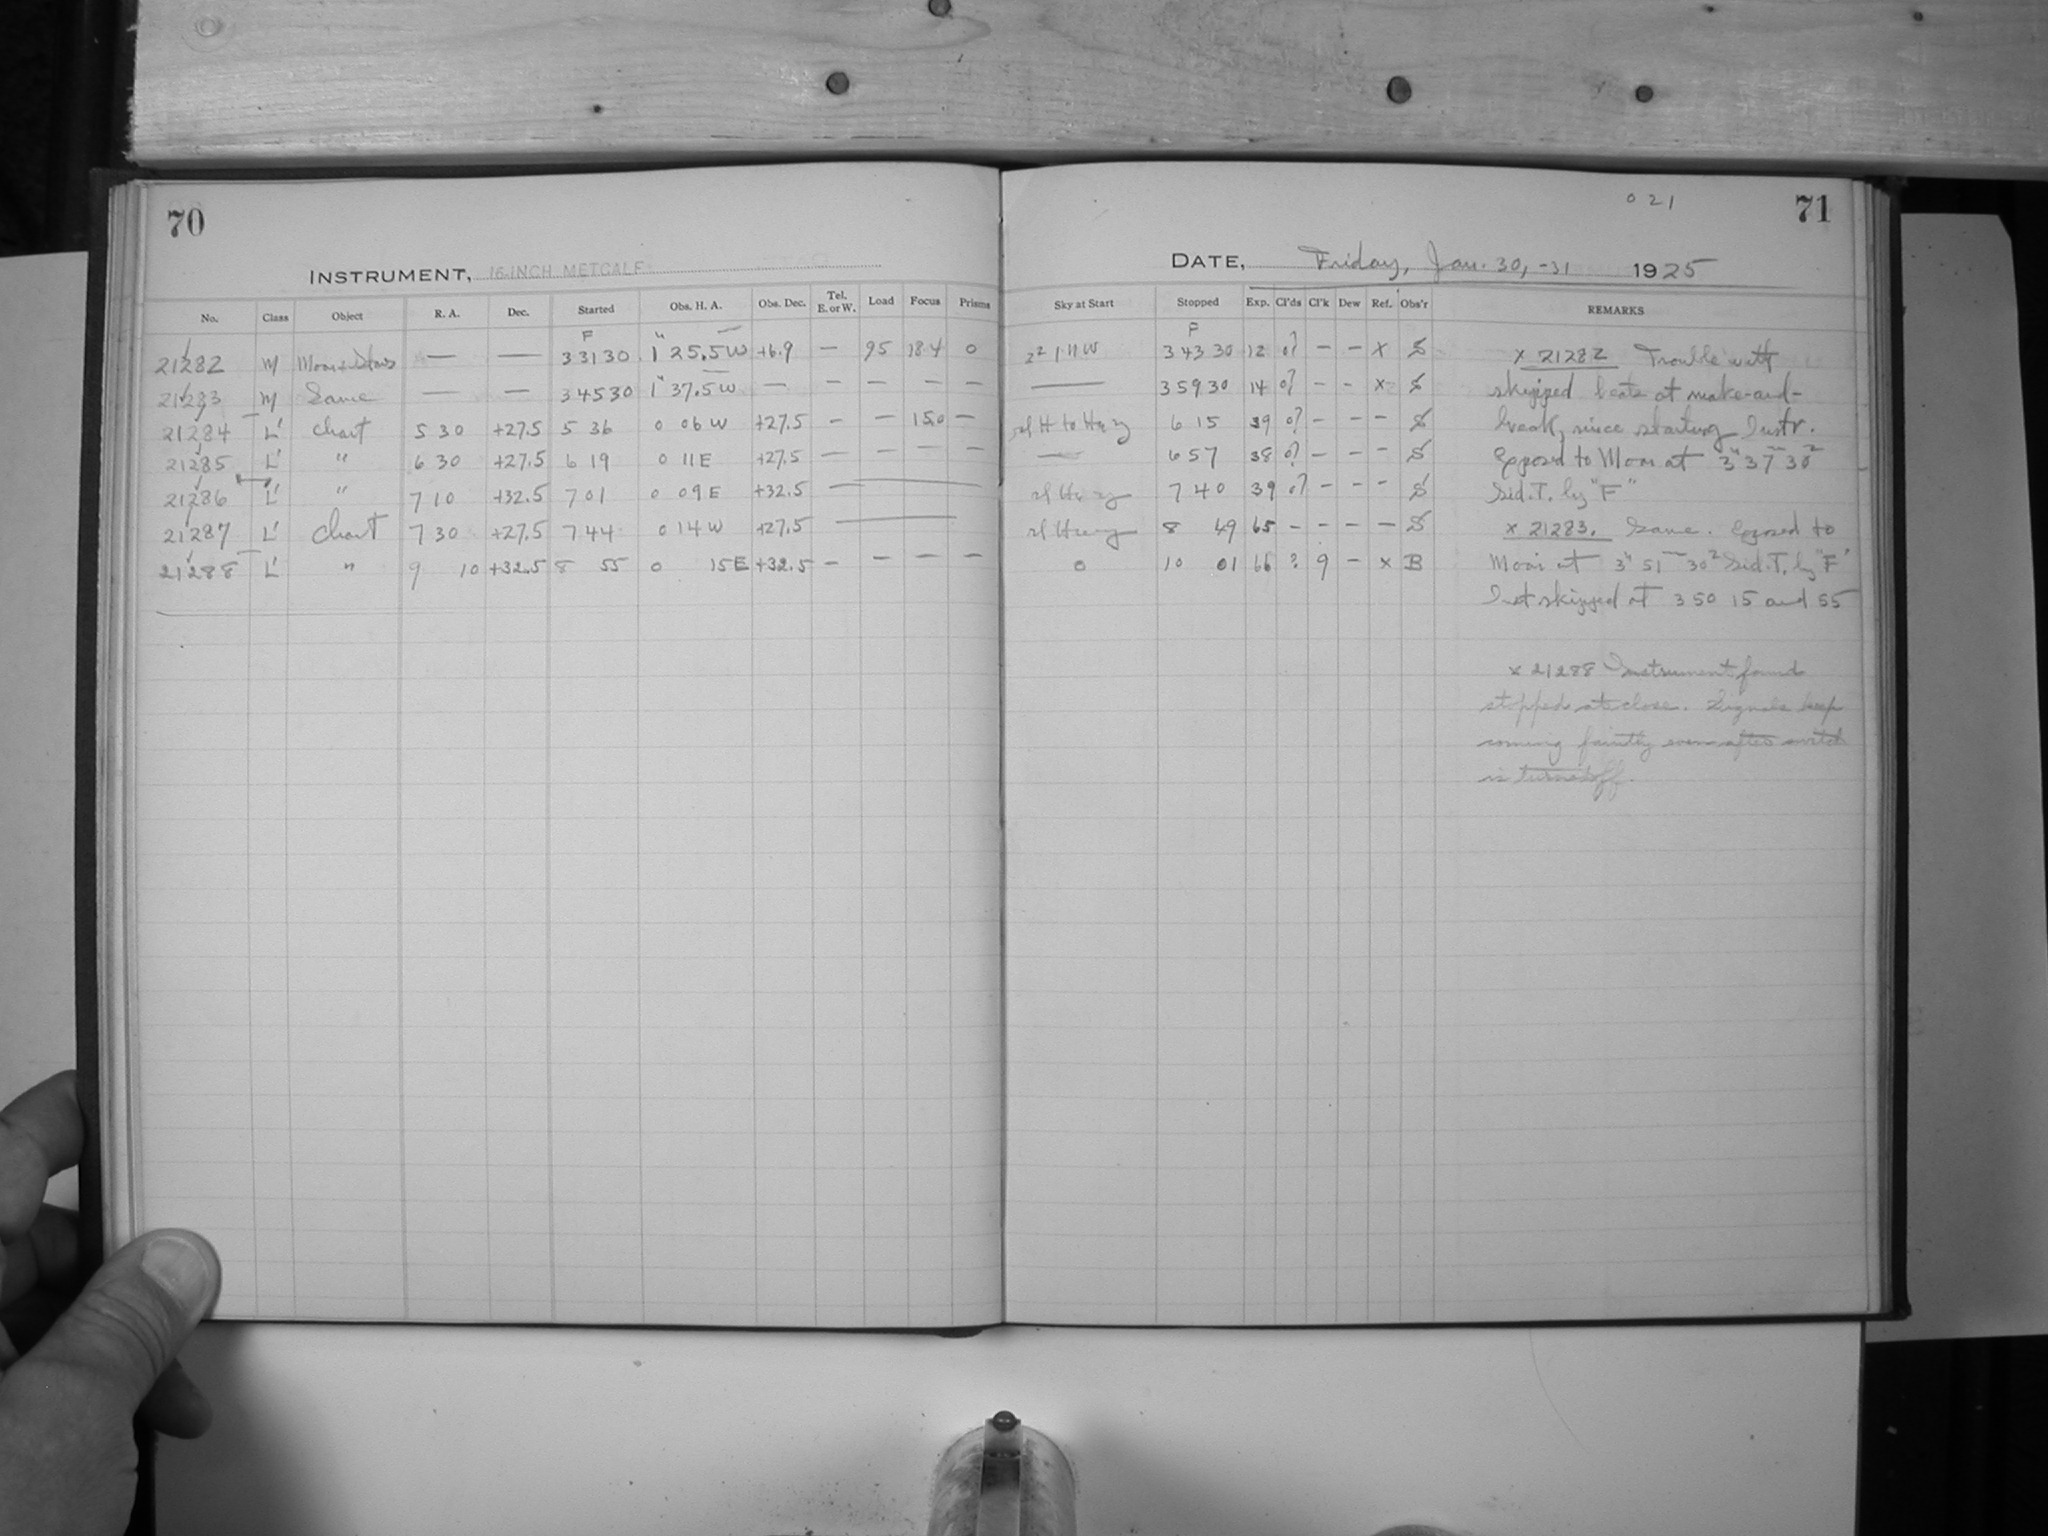 70
INSTRUMENT, 16-INCH METCALF
No. Class Object R. A. Dec. Started Obs. H. A. Obs. Dec. Tel. E. or W. Load Focus Prisms
F
21282 M Moon & Stars — — 3 31 30 1ʰ 25.5 W +16.9 — 95 18.4 0
21283 M Same — — 3 45 30 1ʰ 37.5 W — — — — —
21284 L' Chart 5 30 +27.5 5 36 0 06 W +27.5 — — 15.0 —
21285 L' " 6 30 +27.5 6 19 0 11 E +27.5 — — — —
21286 L' " 7 10 +32.5 7 01 0 09 E +32.5 —
21287 L' Chart 7 30 +27.5 7 44 0 14 W +27.5 —
21288 L' " 9 10 +32.5 8 55 0 15 E +32.5 — — — —
021
71
DATE, Friday, Jan. 30, -31 1925
Sky at Start Stopped Exp. Cl'ds Cl'k Dew Ref. Obs'r REMARKS
F
3 43 30 12 0? — — x S
— 3 59 30 14 0? — — x S
6 15 39 0? — — — S
— 6 57 38 0? — — — S
sl Hazy 7 40 39 0? — — — S
sl Hazy 8 49 65 — — — — S
0 10 01 66 ? 9 — x B
x 21282 Trouble with
skipped beats at make-and-
break, since starting Instr.
Exposed to Moon at 3ʰ 37ᵐ 30ˢ
Sid. T. by "F"
x 21283. Same. Exposed to
Moon at 3ʰ 51ᵐ 30ˢ Sid. T. by "F"
Inst skipped at 3 50 15 and 55
x 21288 Instrument found
stopped at close. Signals keep
coming faintly even after switch
is turned off.